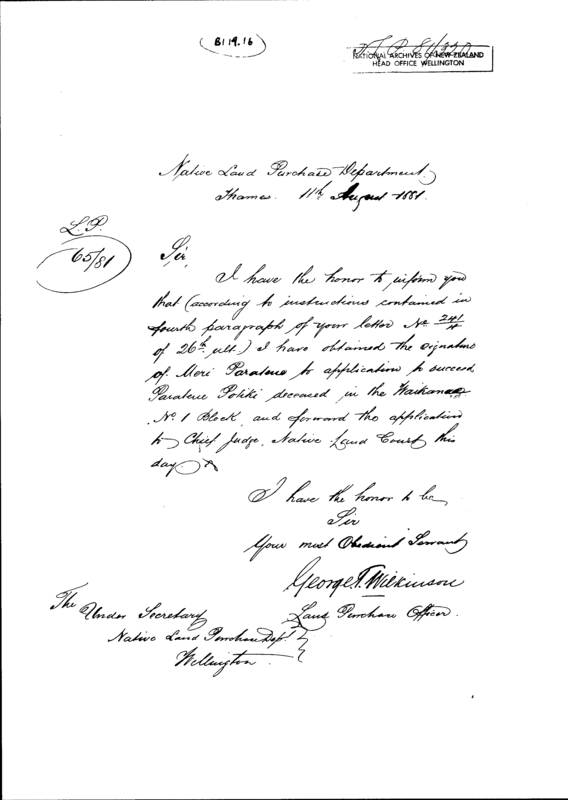 B119.16
NATIONAL ARCHIVES OF NEW ZEALAND
HEAD OFFICE WELLINGTON
Native Land Purchase Department
Thames. 11th August 1881.
L.P.
65/81
Sir,
I have the honor to inform you
that (according to instructions contained in
fourth paragraph of your letter No 241
of 26th ult.) I have obtained the signature
of Meri Paratene to application to succeed
Paratene Potiki deceased in the
No. 1 Block, and forward the application
to Chief Judge, Native Land Court this
day
I have the honor to be
Sir
Your most Obedient Servant
George T. Wilkinson
Land Purchase Officer.
The
Under Secretary
Native Land Purchase Dept.
Wellington.